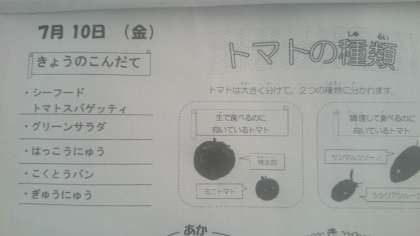 7月10日（金）
きょうのこんだて
・シーフード
トマトスパゲッティ
・グリーンサラダ
・はっこうにゅう
・こくとうパン
・ぎゅうにゅう
しゅ るい
トマトの種類
トマトは大きく分けて、２つの種類に分かれます。
生で食べるのに
向いているトマト
桃太郎
ミニトマト
調理して食べるのに
向いているトマト
サンマルツァーノ
シシリアンルージュ
あか